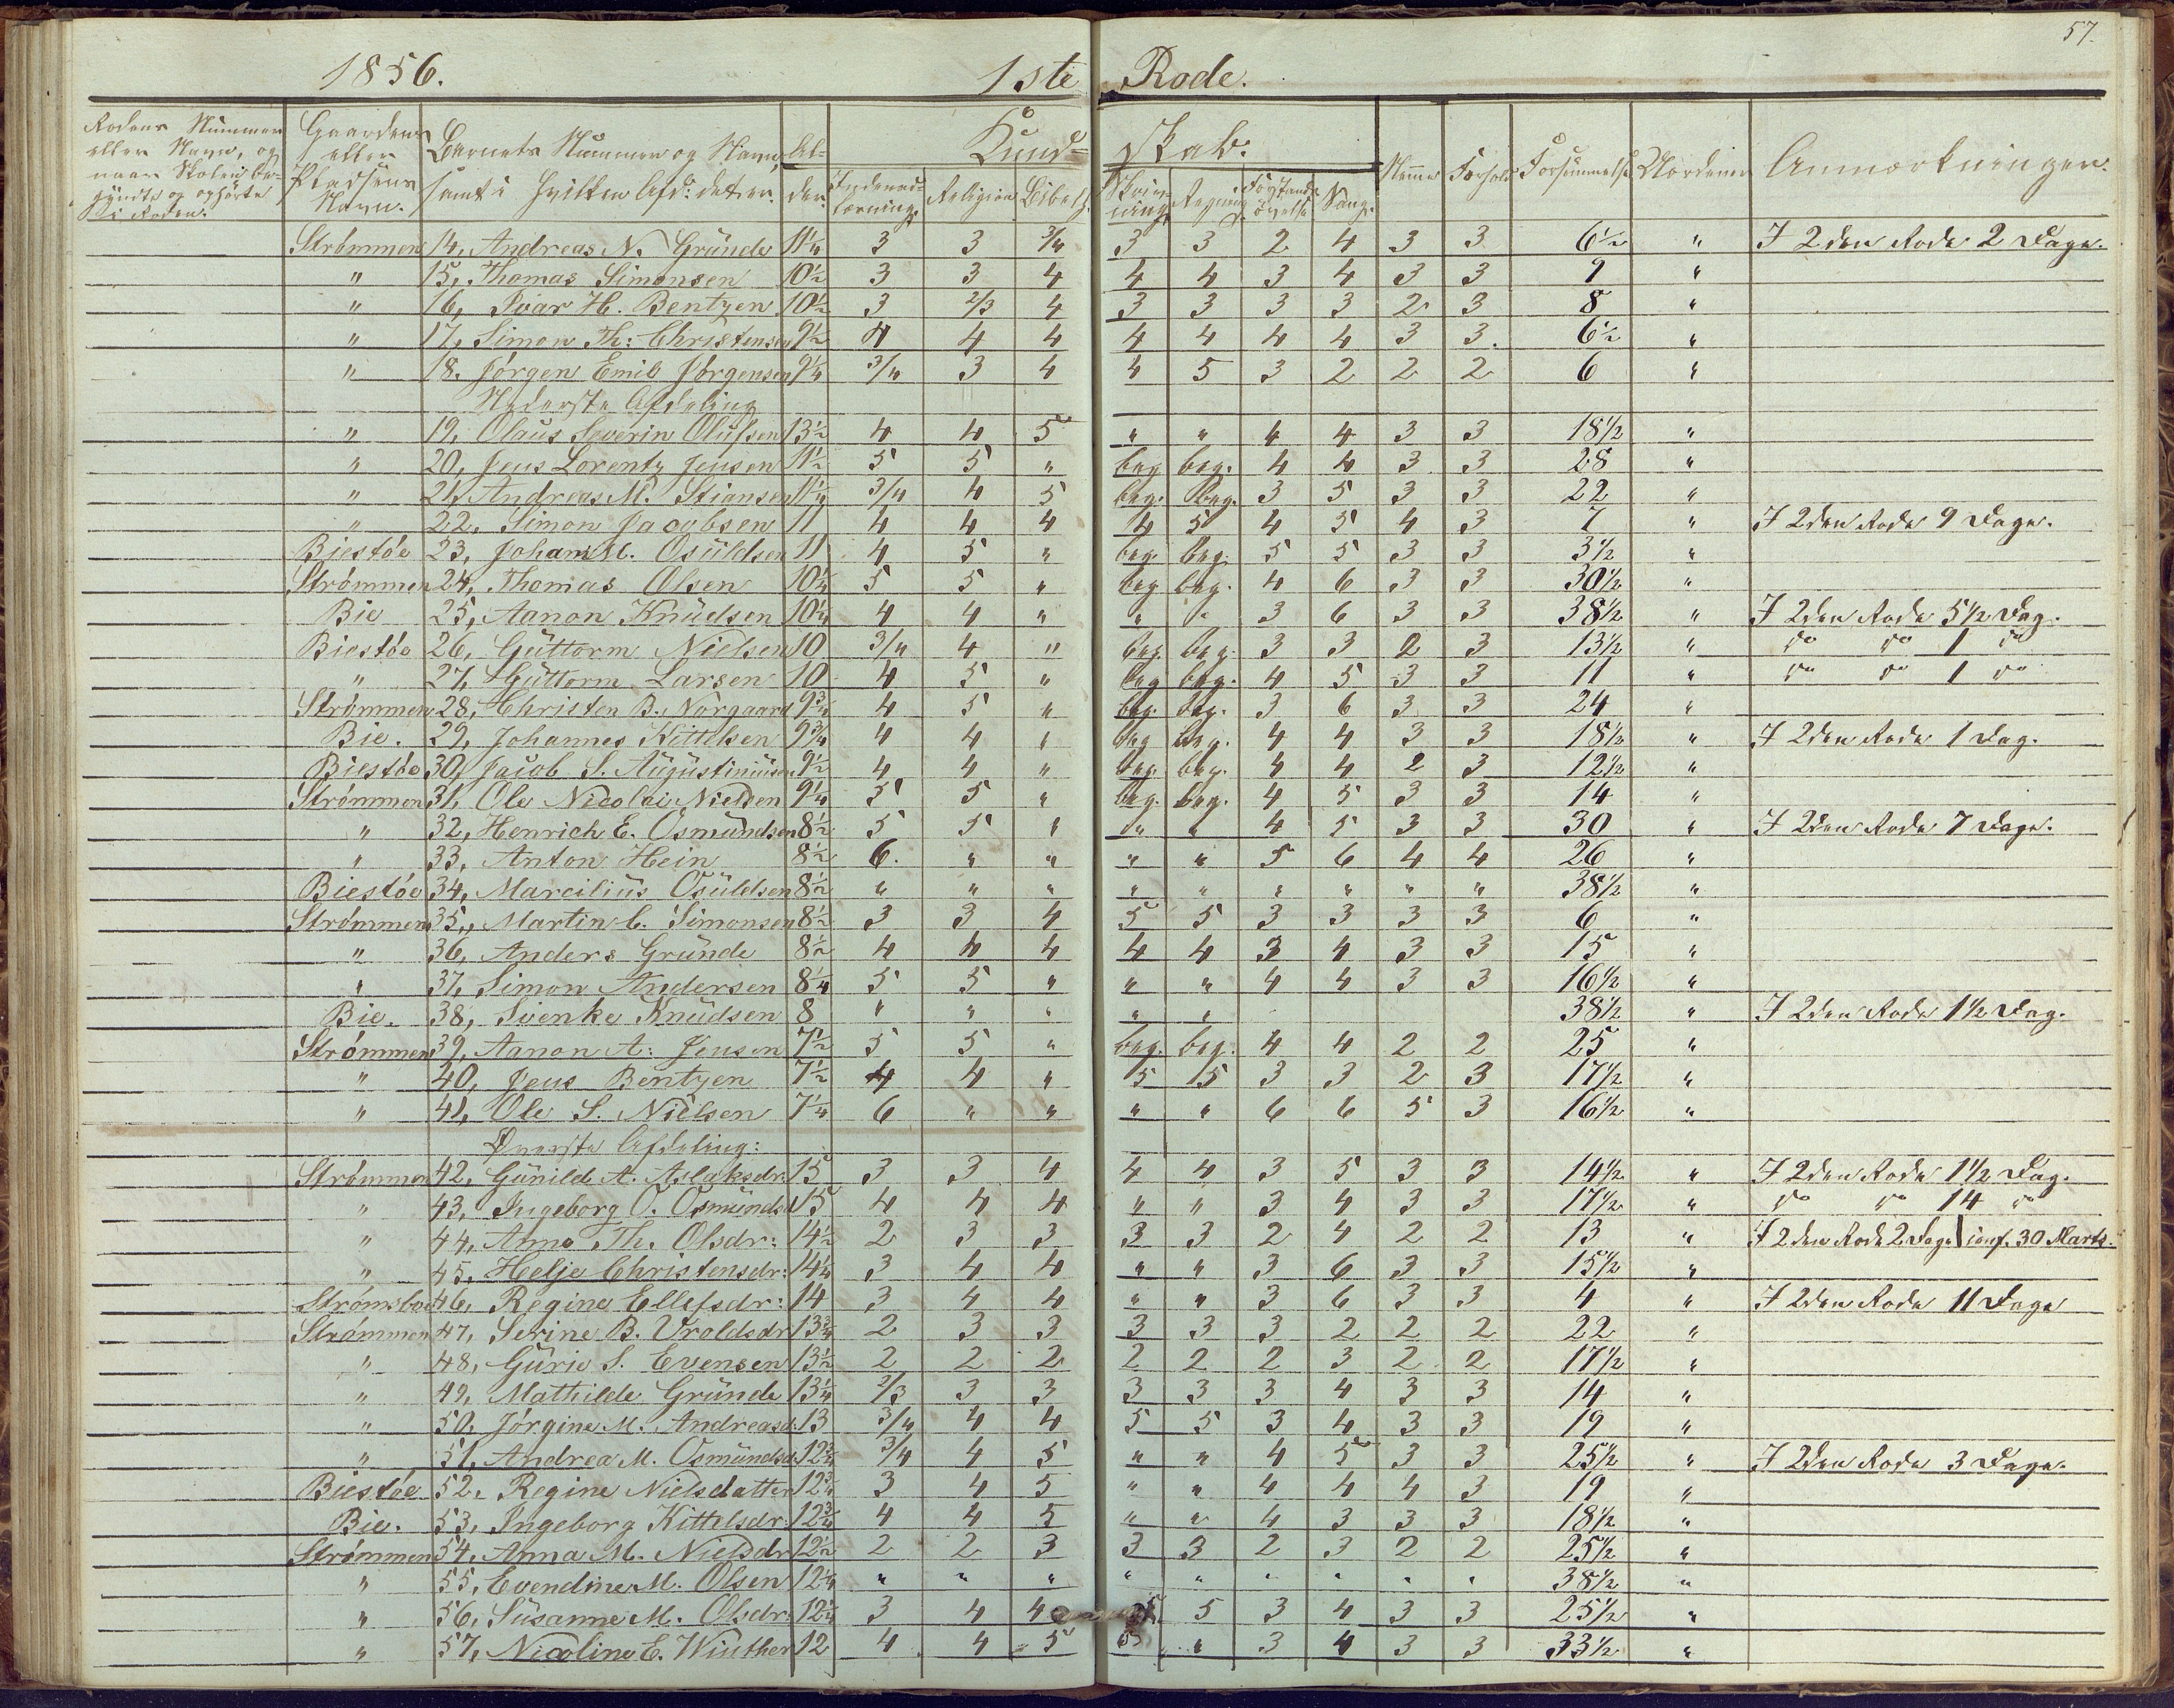 57.
1856. 1ste Rode.
Rodens Nummer eller Navn, og naar Skolen begyndte og ophørte i Roden. Gaardens eller Pladsens Navn. Barnets Nummer og Navn, samt i hvilken Afd: det er. Alder. Kundskab: Religion Bibelh. Skrivning Regning Forstandsøvelse Sang. Nemme Forhold Forsømmelse Uordener Anmærkninger.
Strømmen 14, Andreas N. Gründe 11¼ 3 3 3/4 3 3 2 4 3 3 6½ " I 2den Rode 2 Dage.
" 15, Thomas Simonsen 10½ 3 3 4 4 4 3 4 3 3 9 "
" 16, Ivar H. Bentzen 10½ 3 2/3 4 3 3 3 3 2 3 8 "
" 17, Simon Th: Christensen 9½ 4 4 4 4 4 4 4 3 3. 6½ "
" 18. Jørgen Emil Jørgensen 9¼ 3/4 3 4 4 5 3 2 2 2 6 "
Nederste Afdeling
" 19, Olaus Severin Olufsen 13½ 4 4 5 " " 4 4 3 3 18½ "
" 20, Jens Lorentz Jensen 11½ 5 5 " beg beg. 4 4 3 3 28 "
" 21, Andreas M. Stiansen 11¼ 3/4 4 5 beg. beg. 3 5 3 3 22 "
" 22, Simon Jacobsen 11 4 4 4 4 5 4 5 4 3 7 " I 2den Rode 9 Dage.
Biestøe 23, Johan M. Osüldsen 11 4 5 " beg. beg. 5 5 3 3 3½ "
Strømmen 24, Thomas Olsen 10¼ 5 5 " beg beg. 4 6 3 3 30½ "
Bie 25, Aanon Knüdsen 10¼ 4 4 " " " 3 6 3 3 38½ " I 2den Rode 5½ Dag.
Biestøe 26, Güttorm Nielsen 10 3/4 4 " beg. beg. 3 3 2 3 13½ " do do 1 do
" 27, Güttorm Larsen 10 4 5 " beg beg. 4 5 3 3 11 " do do 1 do
Strømmen 28, Christen B. Nørgaard 9¾ 4 5 " beg. beg. 3 6 3 3 24 "
Bie. 29, Johannes Kittelsen 9¾ 4 4 " beg beg. 4 4 3 3 18½ " I 2den Rode 1 Dag.
Biestøe 30, Jacob S. Augüstinüsen 9½ 4 4 " beg. beg. 4 4 2 3 12½ "
Strømmen 31, Ole Nicolai Nielsen 9¼ 5 5 " beg. beg. 4 5 3 3 14 "
" 32, Henrich E. Osmündsen 8½ 5 5 " " " 4 5 3 3 30 " I 2den Rode 7 Dage.
" 33, Anton Hein 8½ 6. " " " " 5 6 4 4 26 "
Biestøe 34, Marcilius Osüldsen 8½ " " " " " " " " " 38½ "
Strømmen 35, Martin C. Simonsen 8½ 3 3 4 5 5 3 3 3 3 6 "
" 36, Anders Gründe 8½ 4 4 4 4 4 3 4 3 3 15 "
" 37, Simon Andersen 8¼ 5 5 " " " 4 4 3 3 16½ "
Bie. 38, Svenke Knüdsen 8 " " " " " 38½ " I 2den Rode 1½ Dag.
Strømmen 39, Aanon A. Jensen 7½ 5 5 " beg. beg. 4 4 2 2 25 "
" 40, Jens Bentzen 7½ 4 4 " 5 5 3 3 2 3 17½ "
" 41, Ole S. Nielsen 7¼ 6 " " " " 6 6 5 3 16½ "
Øverste Afdeling:
Strømmen 42, Günild A. Aslaksdr. 15 3 3 4 4 4 3 5 3 3 14½ " I 2den Rode 1½ Dag.
" 43, Ingeborg O. Osmündsd 15 4 4 4 " " 3 4 3 3 17½ " do do 14 do
" 44, Anne Th. Olsdr: 14½ 2 3 3 3 3 2 4 2 2 13 " I 2den Rode 2 Dage conf. 30 Marts.
" 45, Helje Christensdr: 14¼ 3 4 4 " " 3 6 3 3 15½ "
Strømsboe 46, Regine Ellefsdr: 14 3 4 4 " " 3 6 3 3 4 " I 2den Rode 11 Dage
Strømmen 47, Serine B. Vroldsdr 13¾ 2 3 3 3 3 3 2 2 2 22 "
" 48, Gürie S. Evensen 13½ 2 2 2 2 2 2 3 2 2 17½ "
" 49, Mathilde Gründe 13¼ 2/3 3 3 3 3 3 4 3 3 14 "
" 50. Jørgine M. Andreasd. 13 3/4 4 4 5 5 3 4 3 3 19 "
" 51, Andrea M. Osmündsd 12¾ 3/4 4 5 " " 4 5 3 3 25½ " I 2den Rode 3 Dage.
Biestøe 52. Regine Nielsdatter 12¾ 3 4 5 " " 4 4 4 3 19 "
Bie. 53, Ingeborg Kittelsdr. 12¾ 4 4 5 " " 4 3 3 3 18½ "
Strømmen 54, Anna M. Nielsdr 12½ 2 2 3 3 3 2 3 2 2 25½ "
" 55, Evendine M. Olsen 12¼ " " " " " " " " " 38½ "
" 56, Süsanne M. Olsdr: 12¼ 3 4 4 5 3 4 3 3 25½ "
" 57, Nicoline E. Winther 12 4 4 5 5 " 3 4 3 3 33½ "